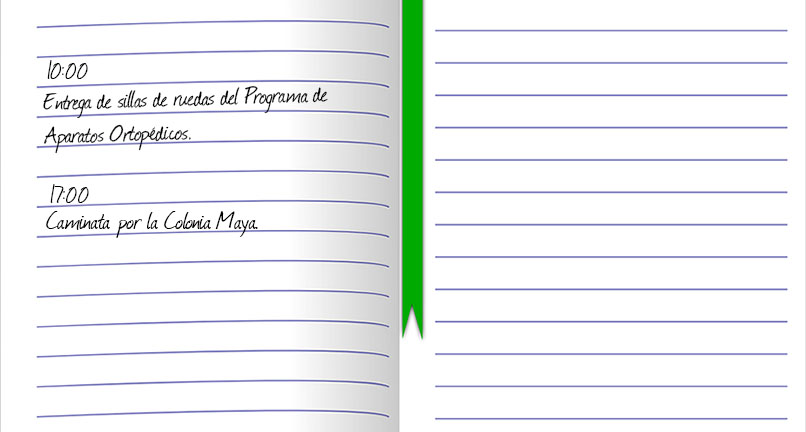 10:00
Entrega de sillas de ruedas del Programa de
Aparatos Ortopédicos.
17:00
Caminata por la Colonia Maya.